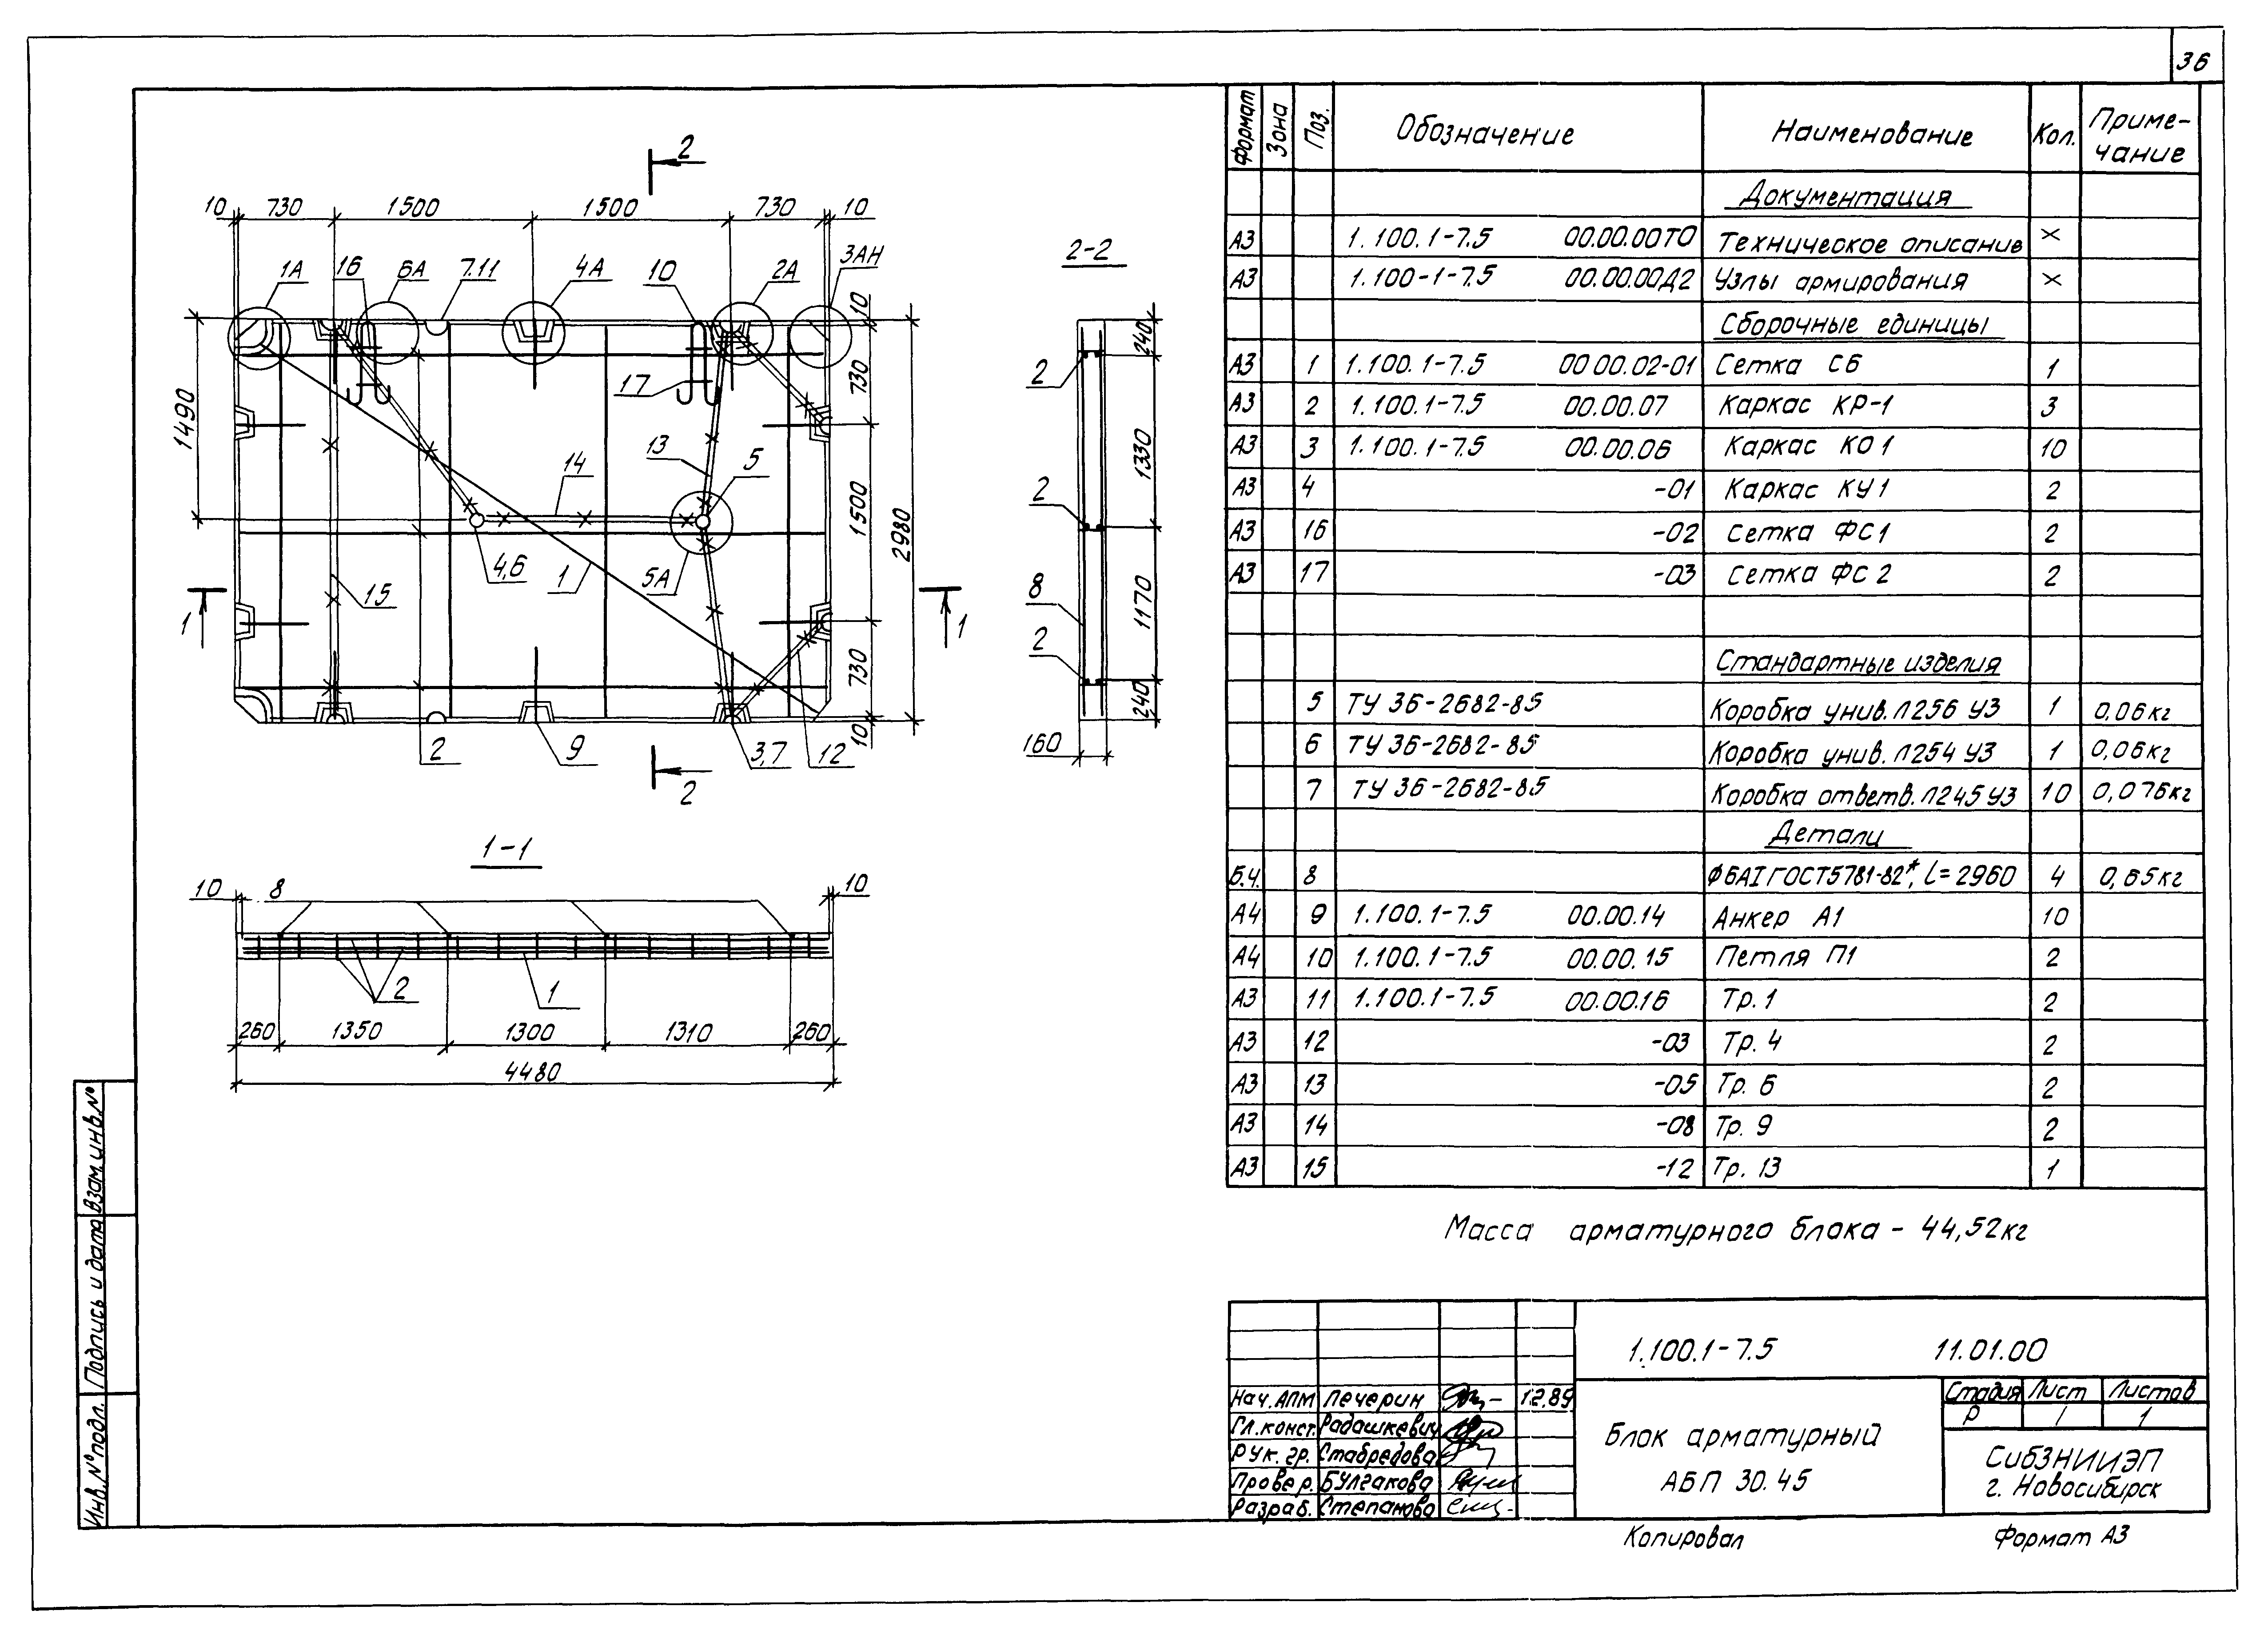 36
2
10 730 1500 1500 730 10
1А 16 6А 7.11 4А 10 2А 3АН
1490
17
13
14
5
4,6
1
5А
15
1
1
2
9
3,7
12
2
10
730
1500
2980
730
10
2-2
2
2
8
2
240
1330
1170
240
160
1-1
10 8 10
2 1
260 1350 1300 1310 260
4480
Формат Зона Поз. Обозначение Наименование Кол. Приме-
чание
Документация
А3 1.100.1-7.5 00.00.00ТО Техническое описание ×
А3 1.100-1-7.5 00.00.00Д2 Узлы армирования ×
Сборочные единицы
А3 1 1.100.1-7.5 00 00.02-01 Сетка С6 1
А3 2 1.100.1-7.5 00.00.07 Каркас КР-1 3
А3 3 1.100.1-7.5 00.00.06 Каркас КО1 10
А3 4 -01 Каркас КУ1 2
А3 16 -02 Сетка ФС1 2
А3 17 -03 Сетка ФС2 2
Стандартные изделия
5 ТУ 36-2682-85 Коробка унив. Л256 У3 1 0,06кг
6 ТУ 36-2682-85 Коробка унив. Л254 У3 1 0,06кг
7 ТУ 36-2682-85 Коробка ответв. Л245 У3 10 0,076кг
Детали
Б.Ч. 8 Ф6АI ГОСТ5781-82*, l=2960 4 0,65кг
А4 9 1.100.1-7.5 00.00.14 Анкер А1 10
А4 10 1.100.1-7.5 00.00.15 Петля П1 2
А3 11 1.100.1-7.5 00.00.16 Тр.1 2
А3 12 -03 Тр. 4 2
А3 13 -05 Тр. 6 2
А3 14 -08 Тр. 9 2
А3 15 -12 Тр. 13 1
Масса арматурного блока - 44,52кг
1.100.1-7.5 11.01.00
Нач.АПМ Печерин 12.89
Гл.конст. Радашкевич
Рук. гр. Стабредова
Провер. Булгакова
Разраб. Степанова
Блок арматурный
АБП 30.45
Стадия Лист Листов
Р 1 1
СибЗНИИЭП
г. Новосибирск
Копировал Формат А3
Взам.инв.№
Подпись и дата
Инв.№подл.